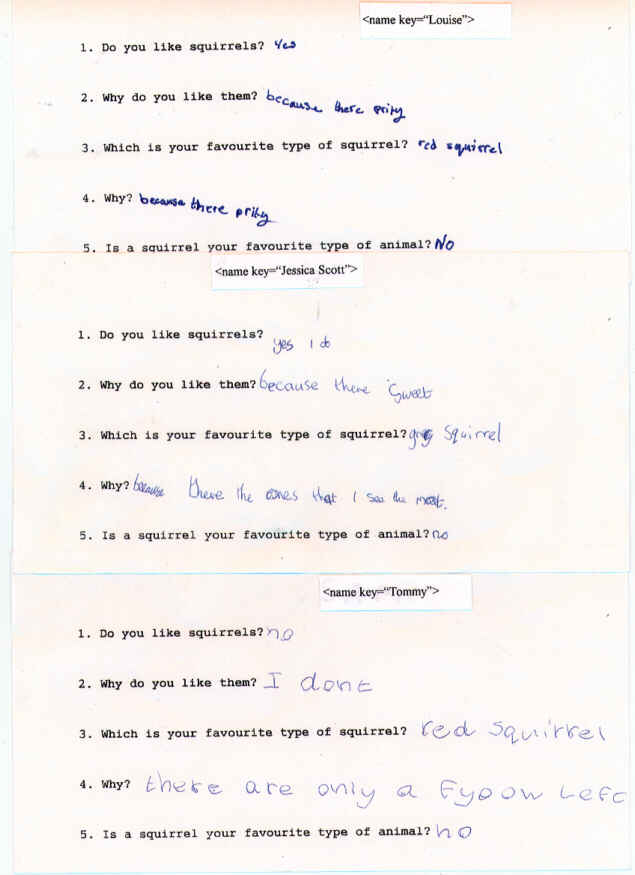 <name key="Louise">
1. Do you like squirrels? Yes
2. Why do you like them? because there prity
3. Which is your favourite type of squirrel? red squirrel
4. Why? because there prity
5. Is a squirrel your favourite type of animal? No
<name key="Jessica Scott">
1. Do you like squirrels? yes I do
2. Why do you like them? because there sweet
3. Which is your favourite type of squirrel? grey squirrel
4. Why? because there the ones that I see the most.
5. Is a squirrel your favourite type of animal? no
<name key="Tommy">
1. Do you like squirrels? no
2. Why do you like them? I dont
3. Which is your favourite type of squirrel? red squirrel
4. Why? there are only a Fyoow Left
5. Is a squirrel your favourite type of animal? no